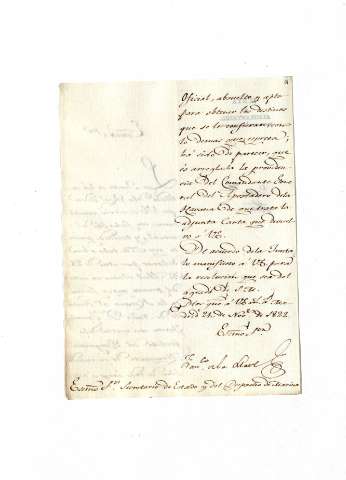 Oficial, absuelto y apto
para obtener los destinos
que se le confieran con
lo demas que espresa;
ha sido de parecer, que
es arreglada la providen-
cia del Comandante Gene-
ral del Apostadero de la
Havana de que trata la
adjunta Carta que devuel-
vo á VE.
De acuerdo de la Junta
lo manifiesto á VE. para
la resolucion que sea del
agrado de S.M.
Dios gue á VE. m.s a.s Ma-
drid 21 de Nov.e de 1822
Exmo. Sor
Exmo Sor. Secretario de Estado y del Despacho de Marina